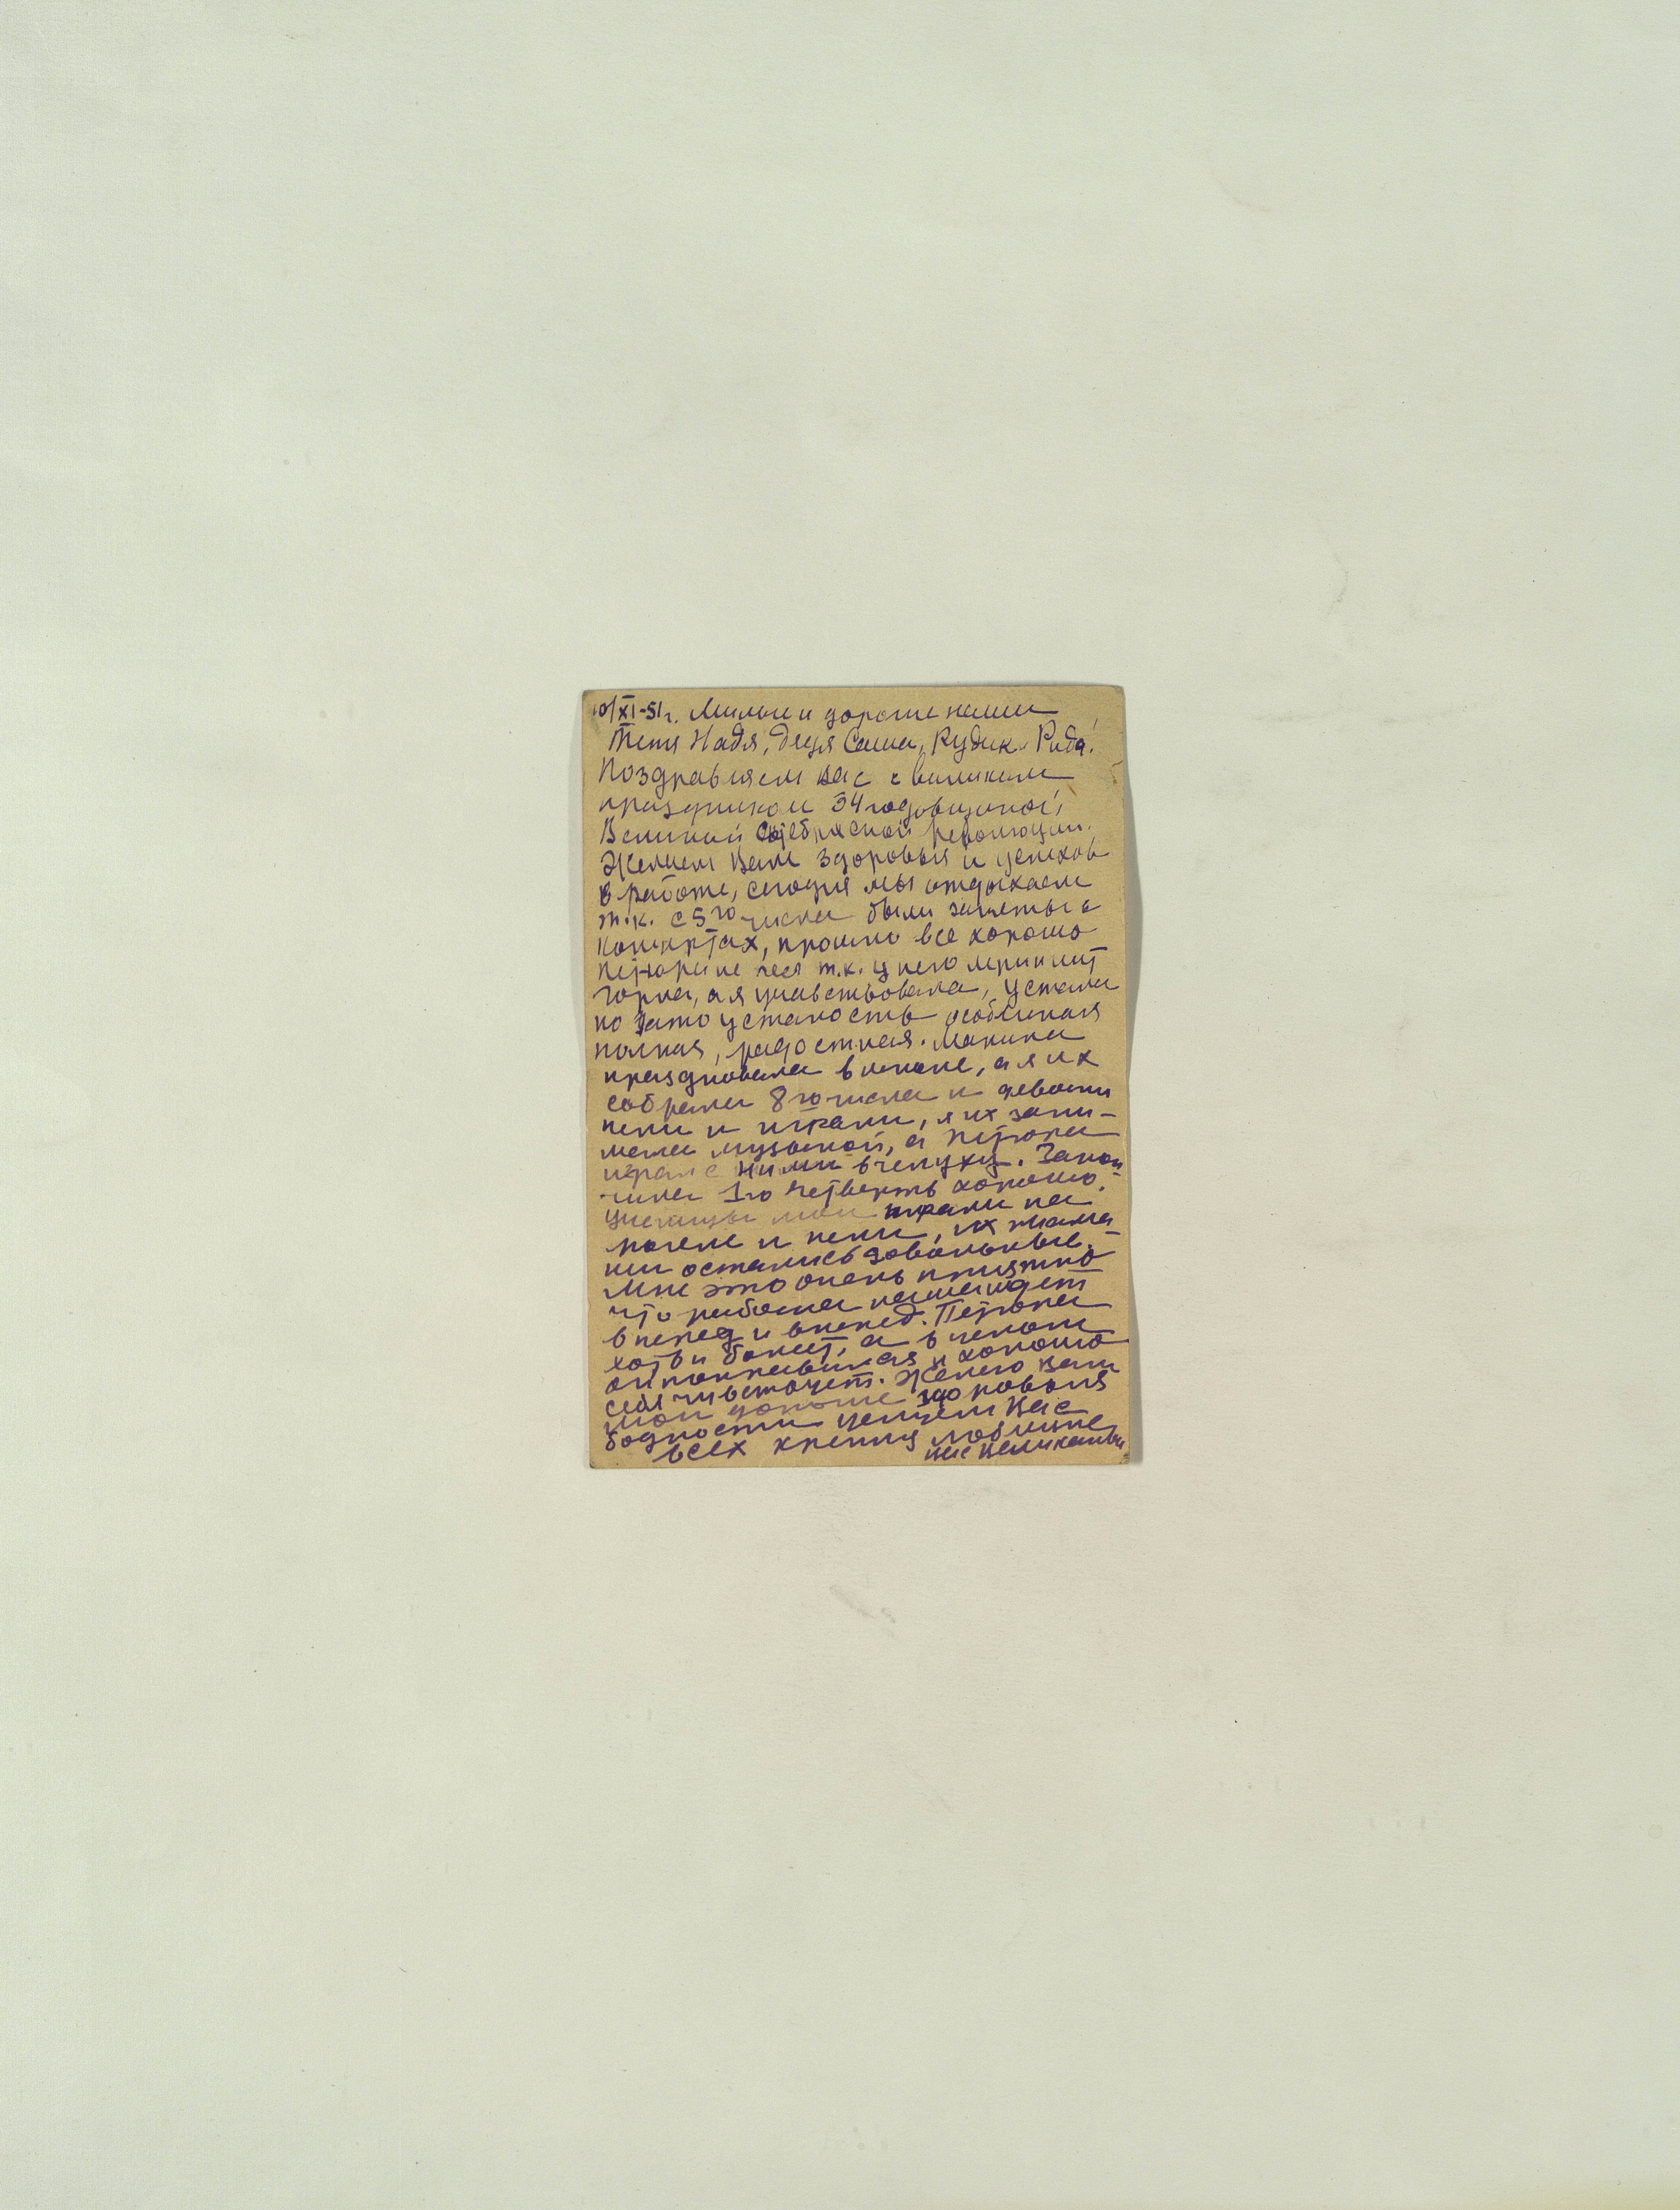 10/XI-51 г. Милые и дорогие наши
тетя Надя, дядя Саша, Рудик и Рида!
Поздравляем вас с великим
праздником 34 годовщиной
Великой Октябрьской революции.
Желаем Вам здоровья и успехов
в работе, сегодня мы отдыхаем
т.к. с 5го числа были заняты в
концертах, прошло все хорошо
Петюра не пел т.к. у него
горла, а я участвовала, устала
но зато усталость особенная
полная, радостная. Марина
праздновала в школе, а я их
собрала 8го числа и девочки
пели и играли, я их зани-
мала музыкой, а Петюра
играл с ними в чепуху. Закон
чила 1ю четверть хорошо.
Ученицы мои играли на
рояле и пели, их мама
ши остались довольные.
Мне это очень приятно
что работа наша идет
вперед и вперед. Петюра
хоть и болеет, а в целом
он поправился и хорошо
себя чувствует. Желаю Вам
мои дорогие здоровья
бодрости целуем Вас
всех крепко любящие
вас